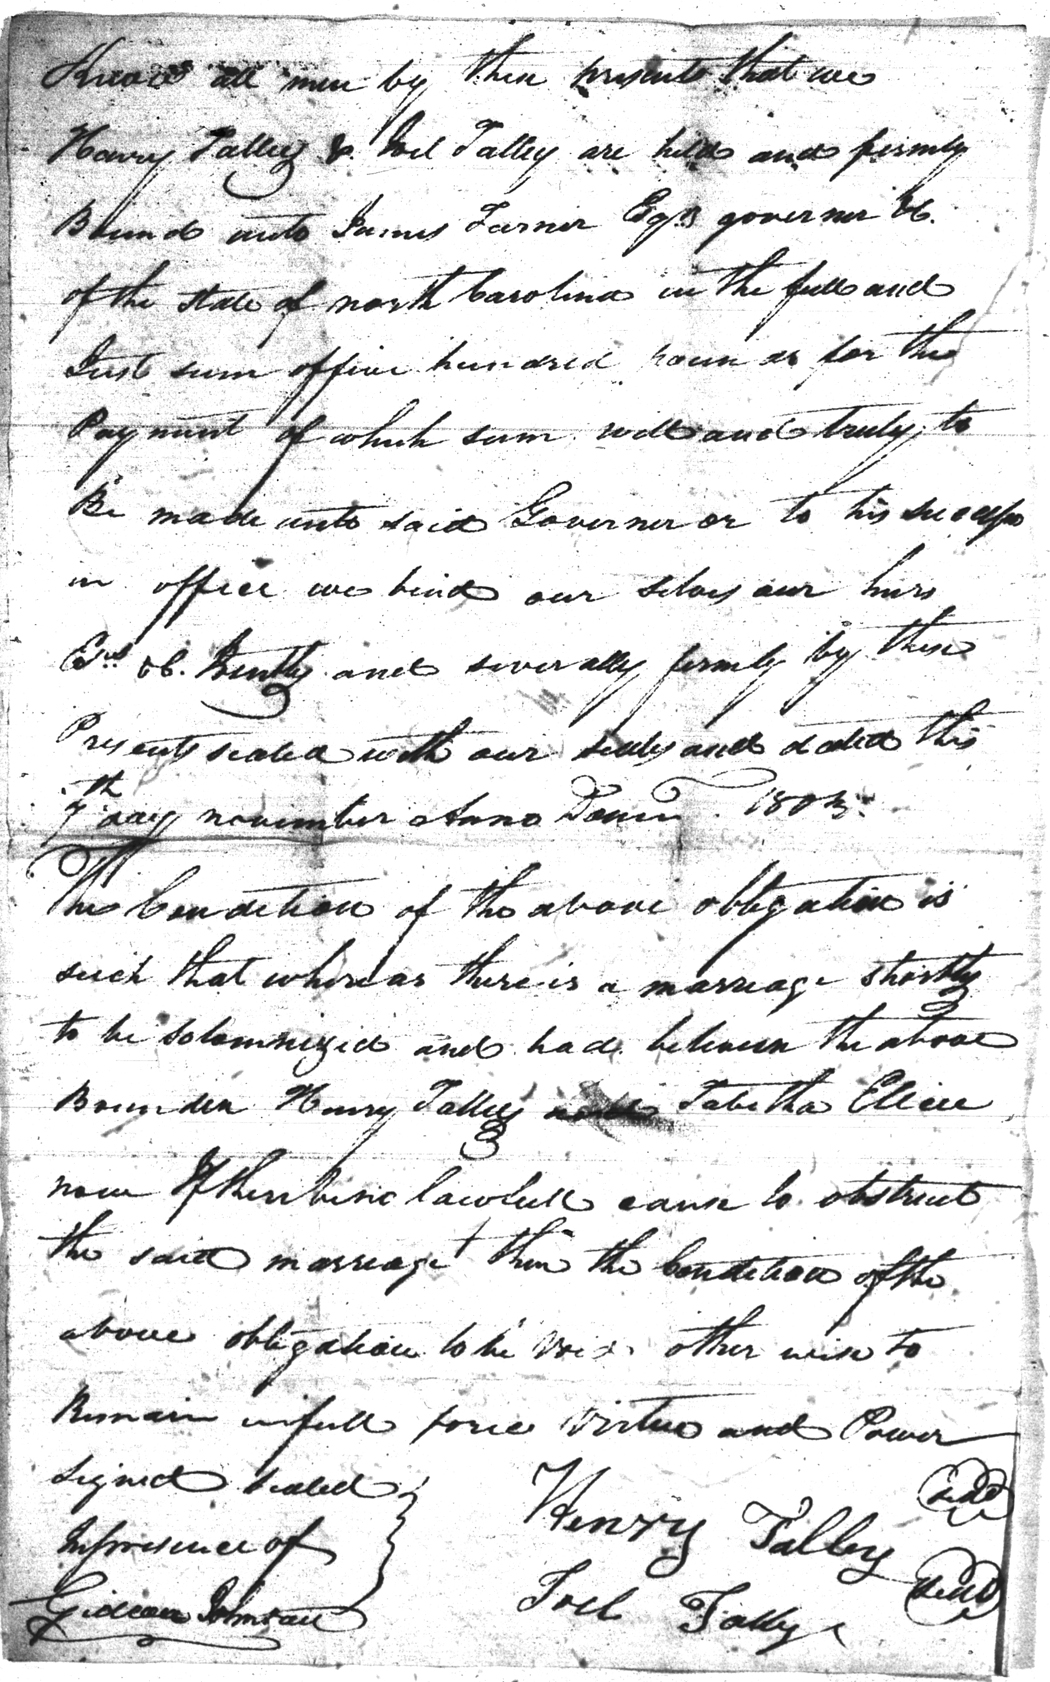 Know all men by these presents that we
Henry Talley & Joel Talley are held and firmly
Bound unto James Turner Esqr governer &c.
of the state of north Carolina in the full and
Just sum of five hundred pounds for the
Payment of which sum well and truly to
Be made unto said Governer or to his success
in office we bind our selves our heirs
Exrs &c. Jointly and severally firmly by these
Presents sealed with our seals and dated this
7th day november Anno Domini 1803.
The Condition of the above obligation is
such that whereas there is a marriage shortly
to be solomnizied and had between the above
Bounden Henry Talley and Tabitha Ellice
now If there be no lawfull cause to obstruct
the said marriage then the Condition of the
above obligation to be Void other wise to
Remain in full force virtue and Power
signed sealed
In presence of
Gideon Johnson
Henry Talley seal
Joel Talley seal